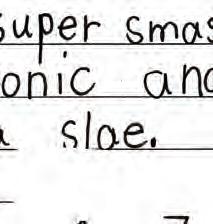 super smas
onic and
a slae.